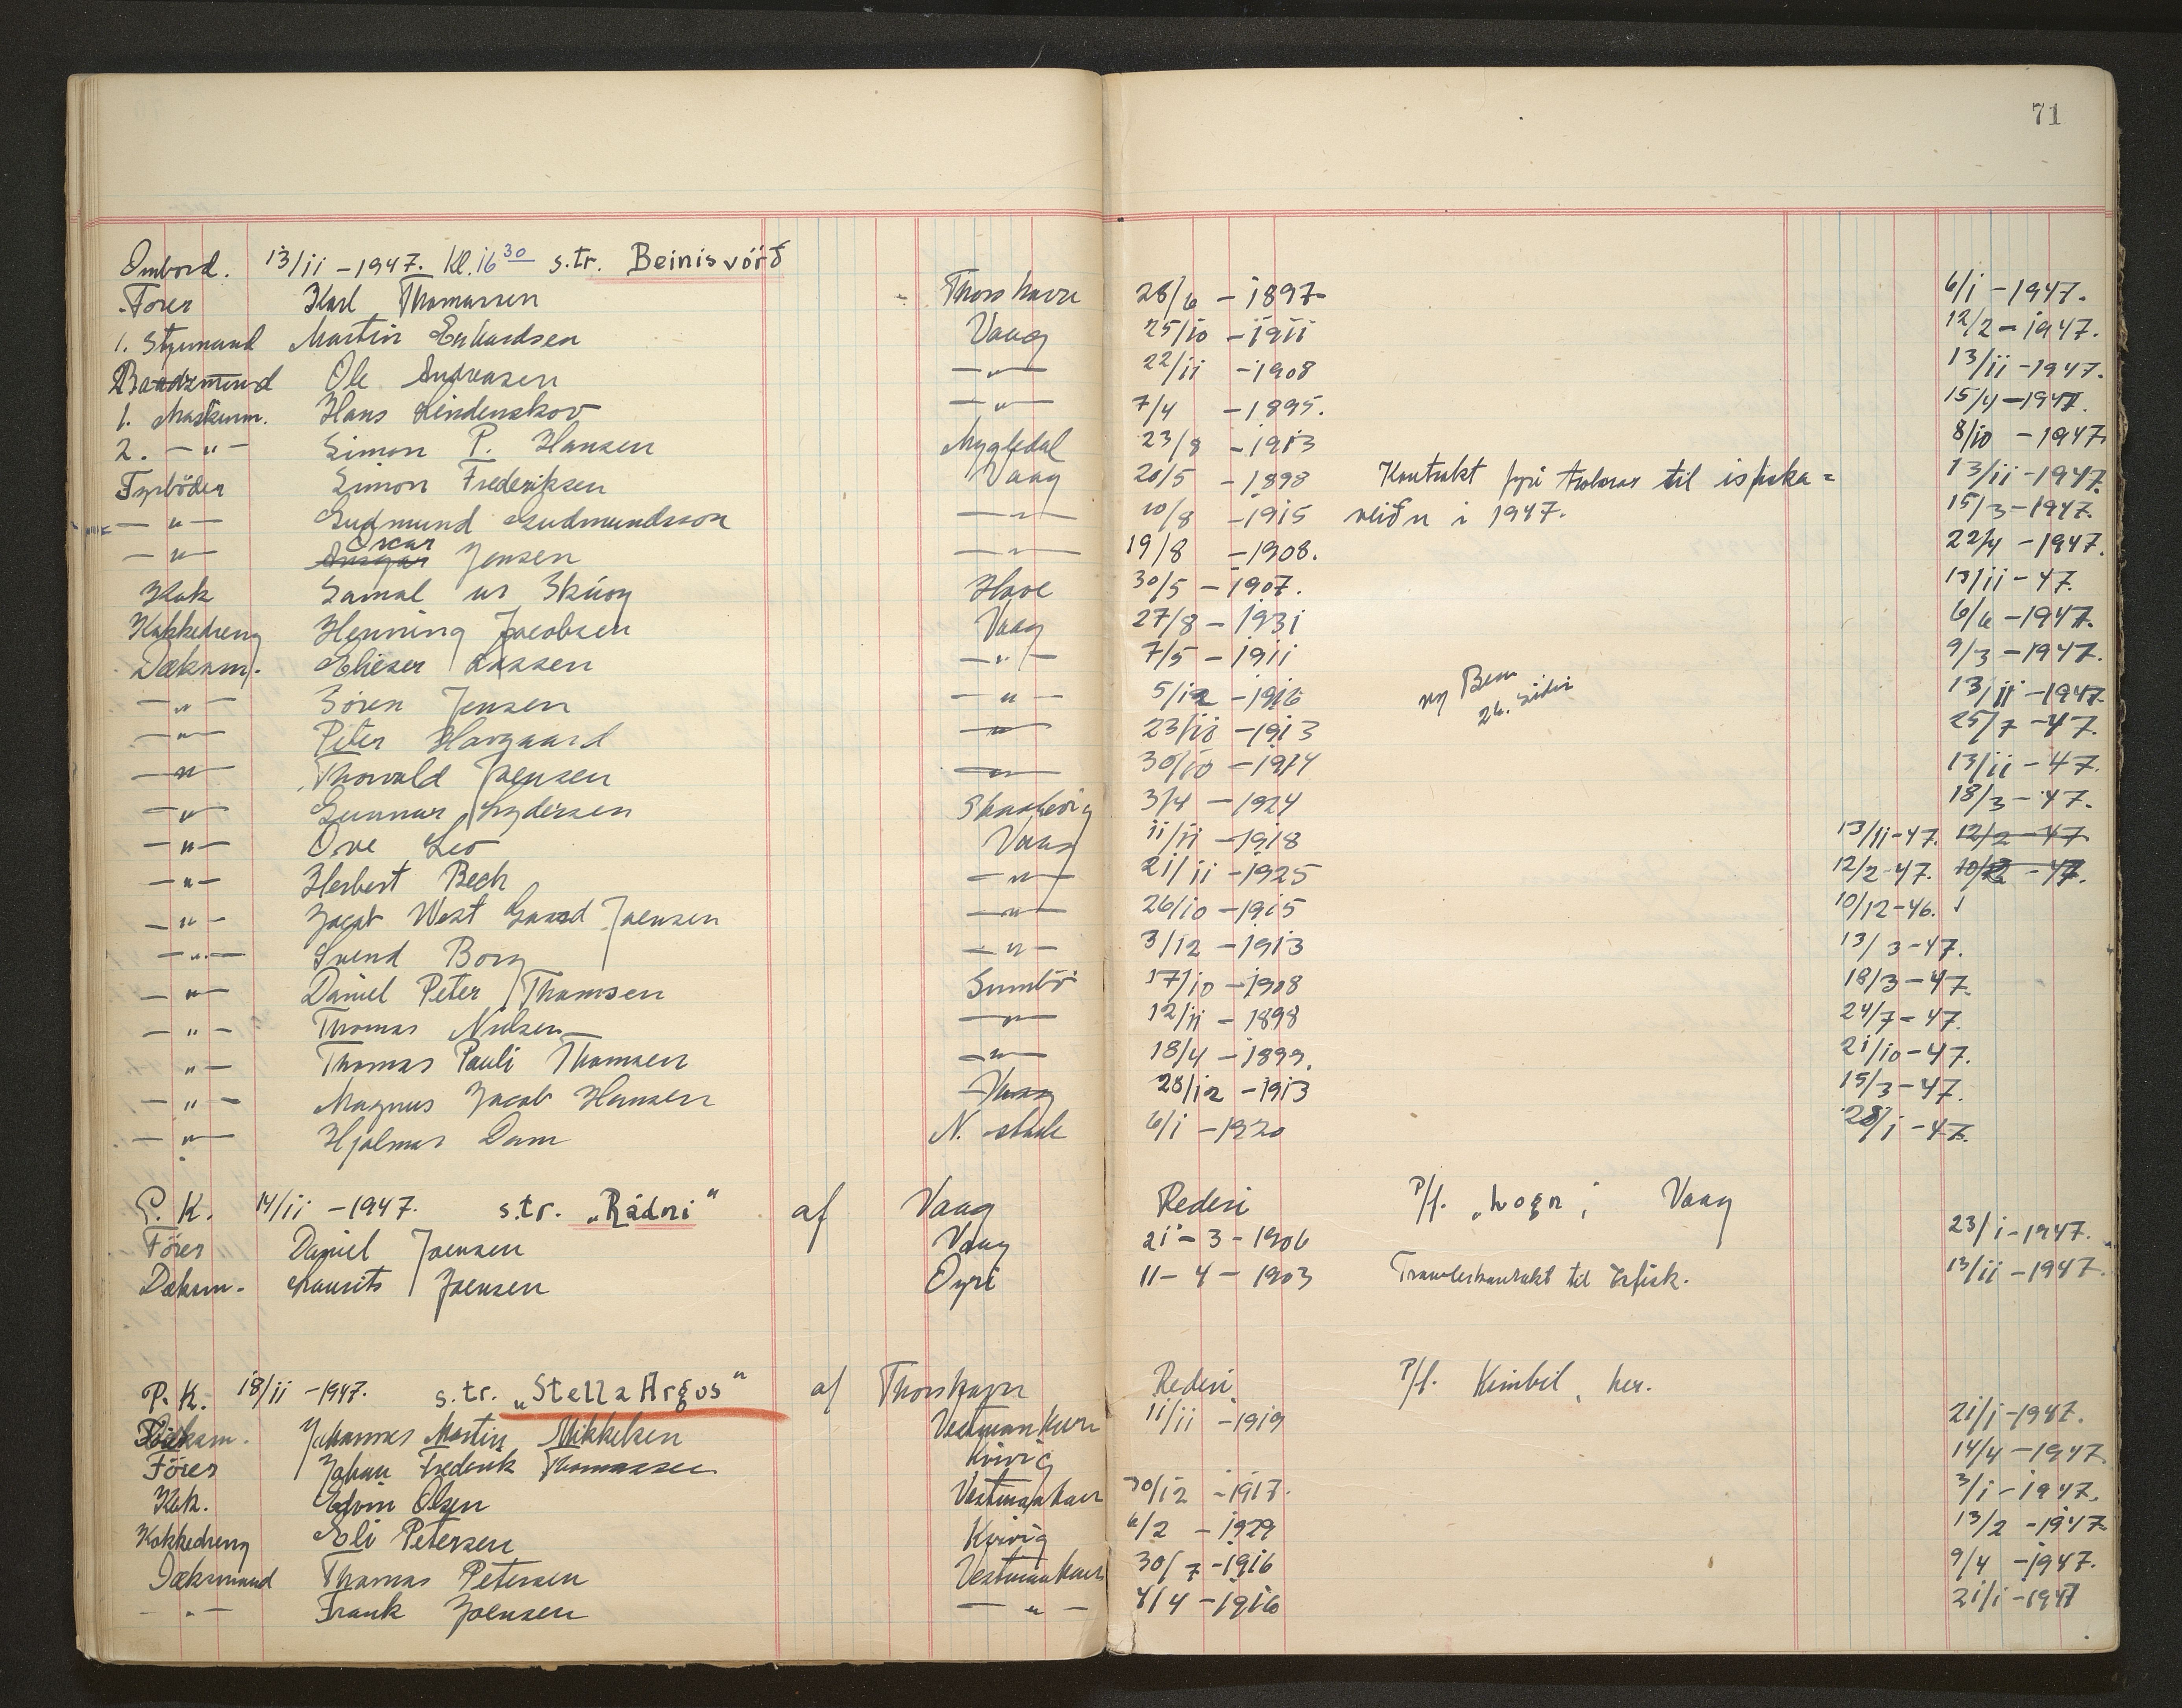 71
Ombord. 13/11 - 1947. Kl. 16 30 s.tr. Beinisvörð
Förer Karl Thomassen Thorshavn 28/6 - 1897. 6/1 - 1947.
1. Styrmand Martin Erhardsen Vaag 25/10 - 1911 12/2 - 1947.
Baadsmand Ole Andreasen —"— 22/11 - 1908 13/11 - 1947.
1. Maskinm. Hans Lindenskov —"— 7/4 - 1895. 15/4 - 1947.
2. —"— Simon P. Hansen Nygledal 23/8 - 1913 8/10 - 1947.
Fyrböder Simon Frederiksen Vaag 20/5 - 1898 Kontrakt fyri trolarar til isfiska= 13/11 - 1947.
—"— Gudmund Gudmundsson —"— 10/8 - 1915 veiðu i 1947. 15/3 - 1947.
—"— Ansgar Oscar Jensen —"— 19/8 - 1908. 22/4 - 1947.
Kok Samal ur Skúvoy Hove 30/5 - 1907. 13/11 - 47.
Kokkedreng Henning Jacobsen Vaag 27/8 - 1931 6/6 - 1947.
Dæksm. Elieser Lassen —"— 7/5 - 1911 9/3 - 1947.
—"— Sören Jensen —"— 5/12 - 1916 13/11 - 1947.
—"— Peter Havgaard —"— 23/10 - 1913 26. sidu 25/7 - 47.
—"— Thorvald Joensen —"— 30/10 - 1914 13/11 - 47.
—"— Gunnar Lydersen 3/4 - 1924 18/3 - 47.
—"— Ove Leo Vaag 11/11 - 1918 13/11 - 47. 12/2 - 47
—"— Herbert Bech —"— 21/11 - 1925 12/2 - 47. 10/12 - 47.
—"— Jacob West Joensen —"— 26/10 - 1915 10/12 - 46.
—"— Svend Borg —"— 3/12 - 1913 13/3 - 47.
—"— Daniel Peter Thomsen Sumbö 17/10 - 1908 18/3 - 47.
—"— Thomas Nielsen —"— 12/11 - 1898 24/7 - 47.
—"— Thomas Pauli Thomsen —"— 18/4 - 1899. 21/10 - 47.
—"— Magnus Jacob Hansen Vaag 28/12 - 1913 15/3 - 47.
—"— Hjalmar Dam N. 6/1 - 1920 28/1 - 47.
P. K. 14/11 - 1947. s.tr. „Rádni" af Vaag Rederi P/f. „Logn", Vaag
Förer Daniel Joensen Vaag 21 - 3 - 1906 23/1 - 1947.
Dæksm. Maurits Joensen Oyri 11 - 4 - 1903 Trawlerkontrakt til Isfisk. 13/11 - 1947.
P. K. 18/11 - 1947. s.tr. „Stella Argus" af Thorshavn Rederi P/f. Kimbil, her.
Dæksm. Johannes Martin Mikkelsen Vestmanhavn 11/11 - 1919 21/1 - 1947.
Förer Johan Frederik Thomassen Kvivig 14/4 - 1947.
Kok. Edvin Olsen Vestmanhavn 30/12 - 1917. 3/1 - 1947.
Kokkedreng Eli Petersen Kvivig 6/2 - 1929 13/2 - 1947
Dæksmand Thomas Petersen Vestmanhavn 30/7 - 1916 9/4 - 1947.
—"— Frank Joensen —"— 4/4 - 1916 21/1 - 1947